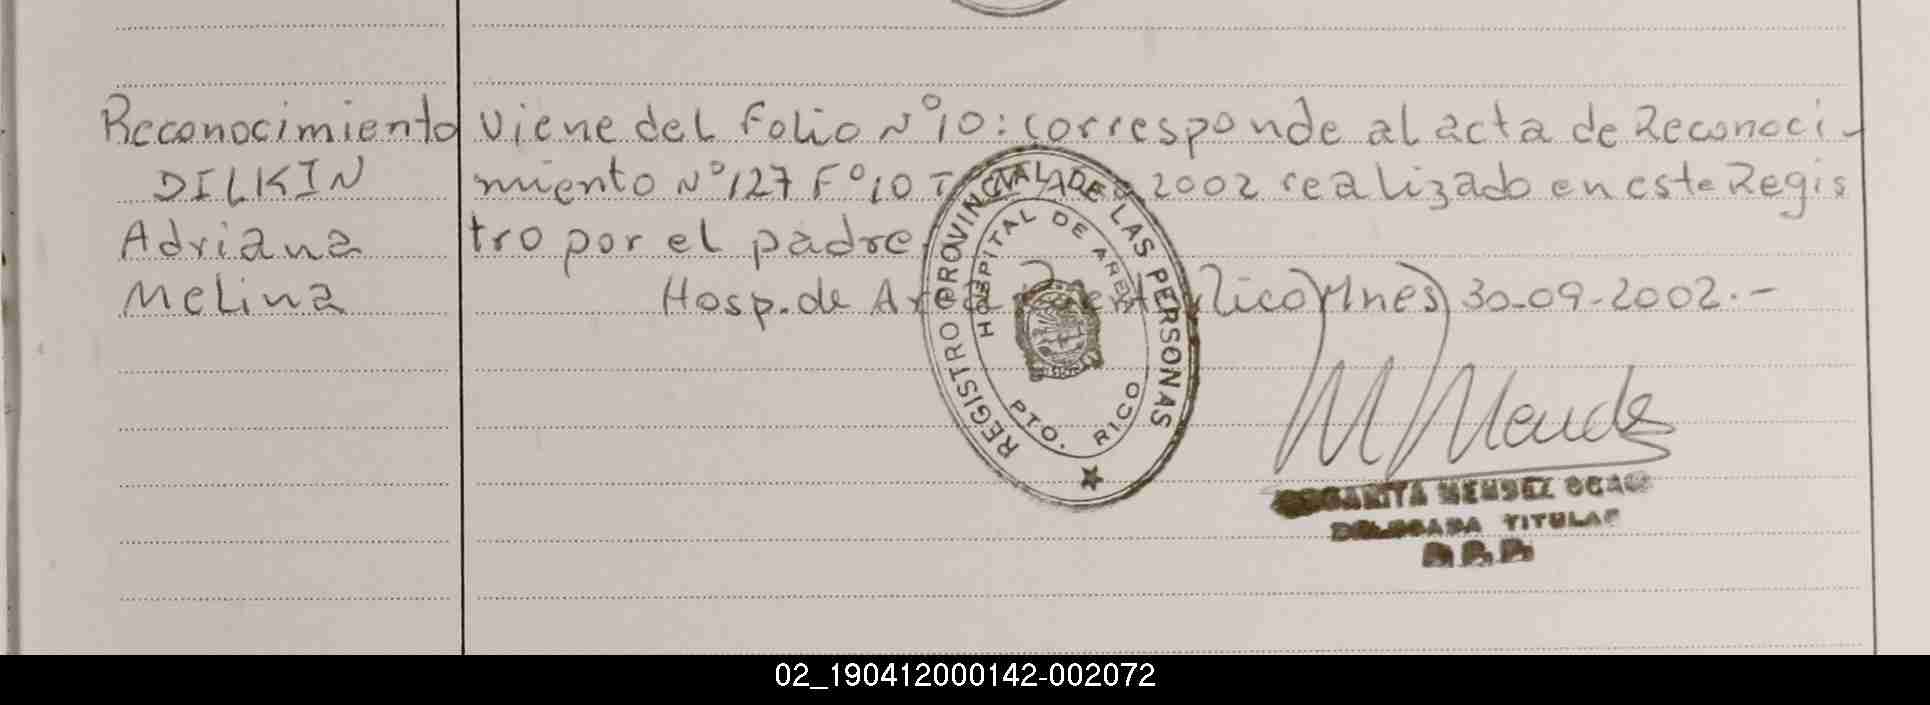 Reconocimiento
DILKIN
Adriana
Melina
Viene del Folio N°10: corresponde al acta de Reconoci-
miento N°127 F°10 2002 realizado en este Regis
tro por el padre
Hosp. de Rico Mnes) 30-09-2002.-
REGISTRO PROVINCIAL DE LAS PERSONAS
HOSPITAL DE AREA
PTO. RICO
M Mendez
MENDEZ
DELEGADA TITULAR
R.P.P.
02_190412000142-002072